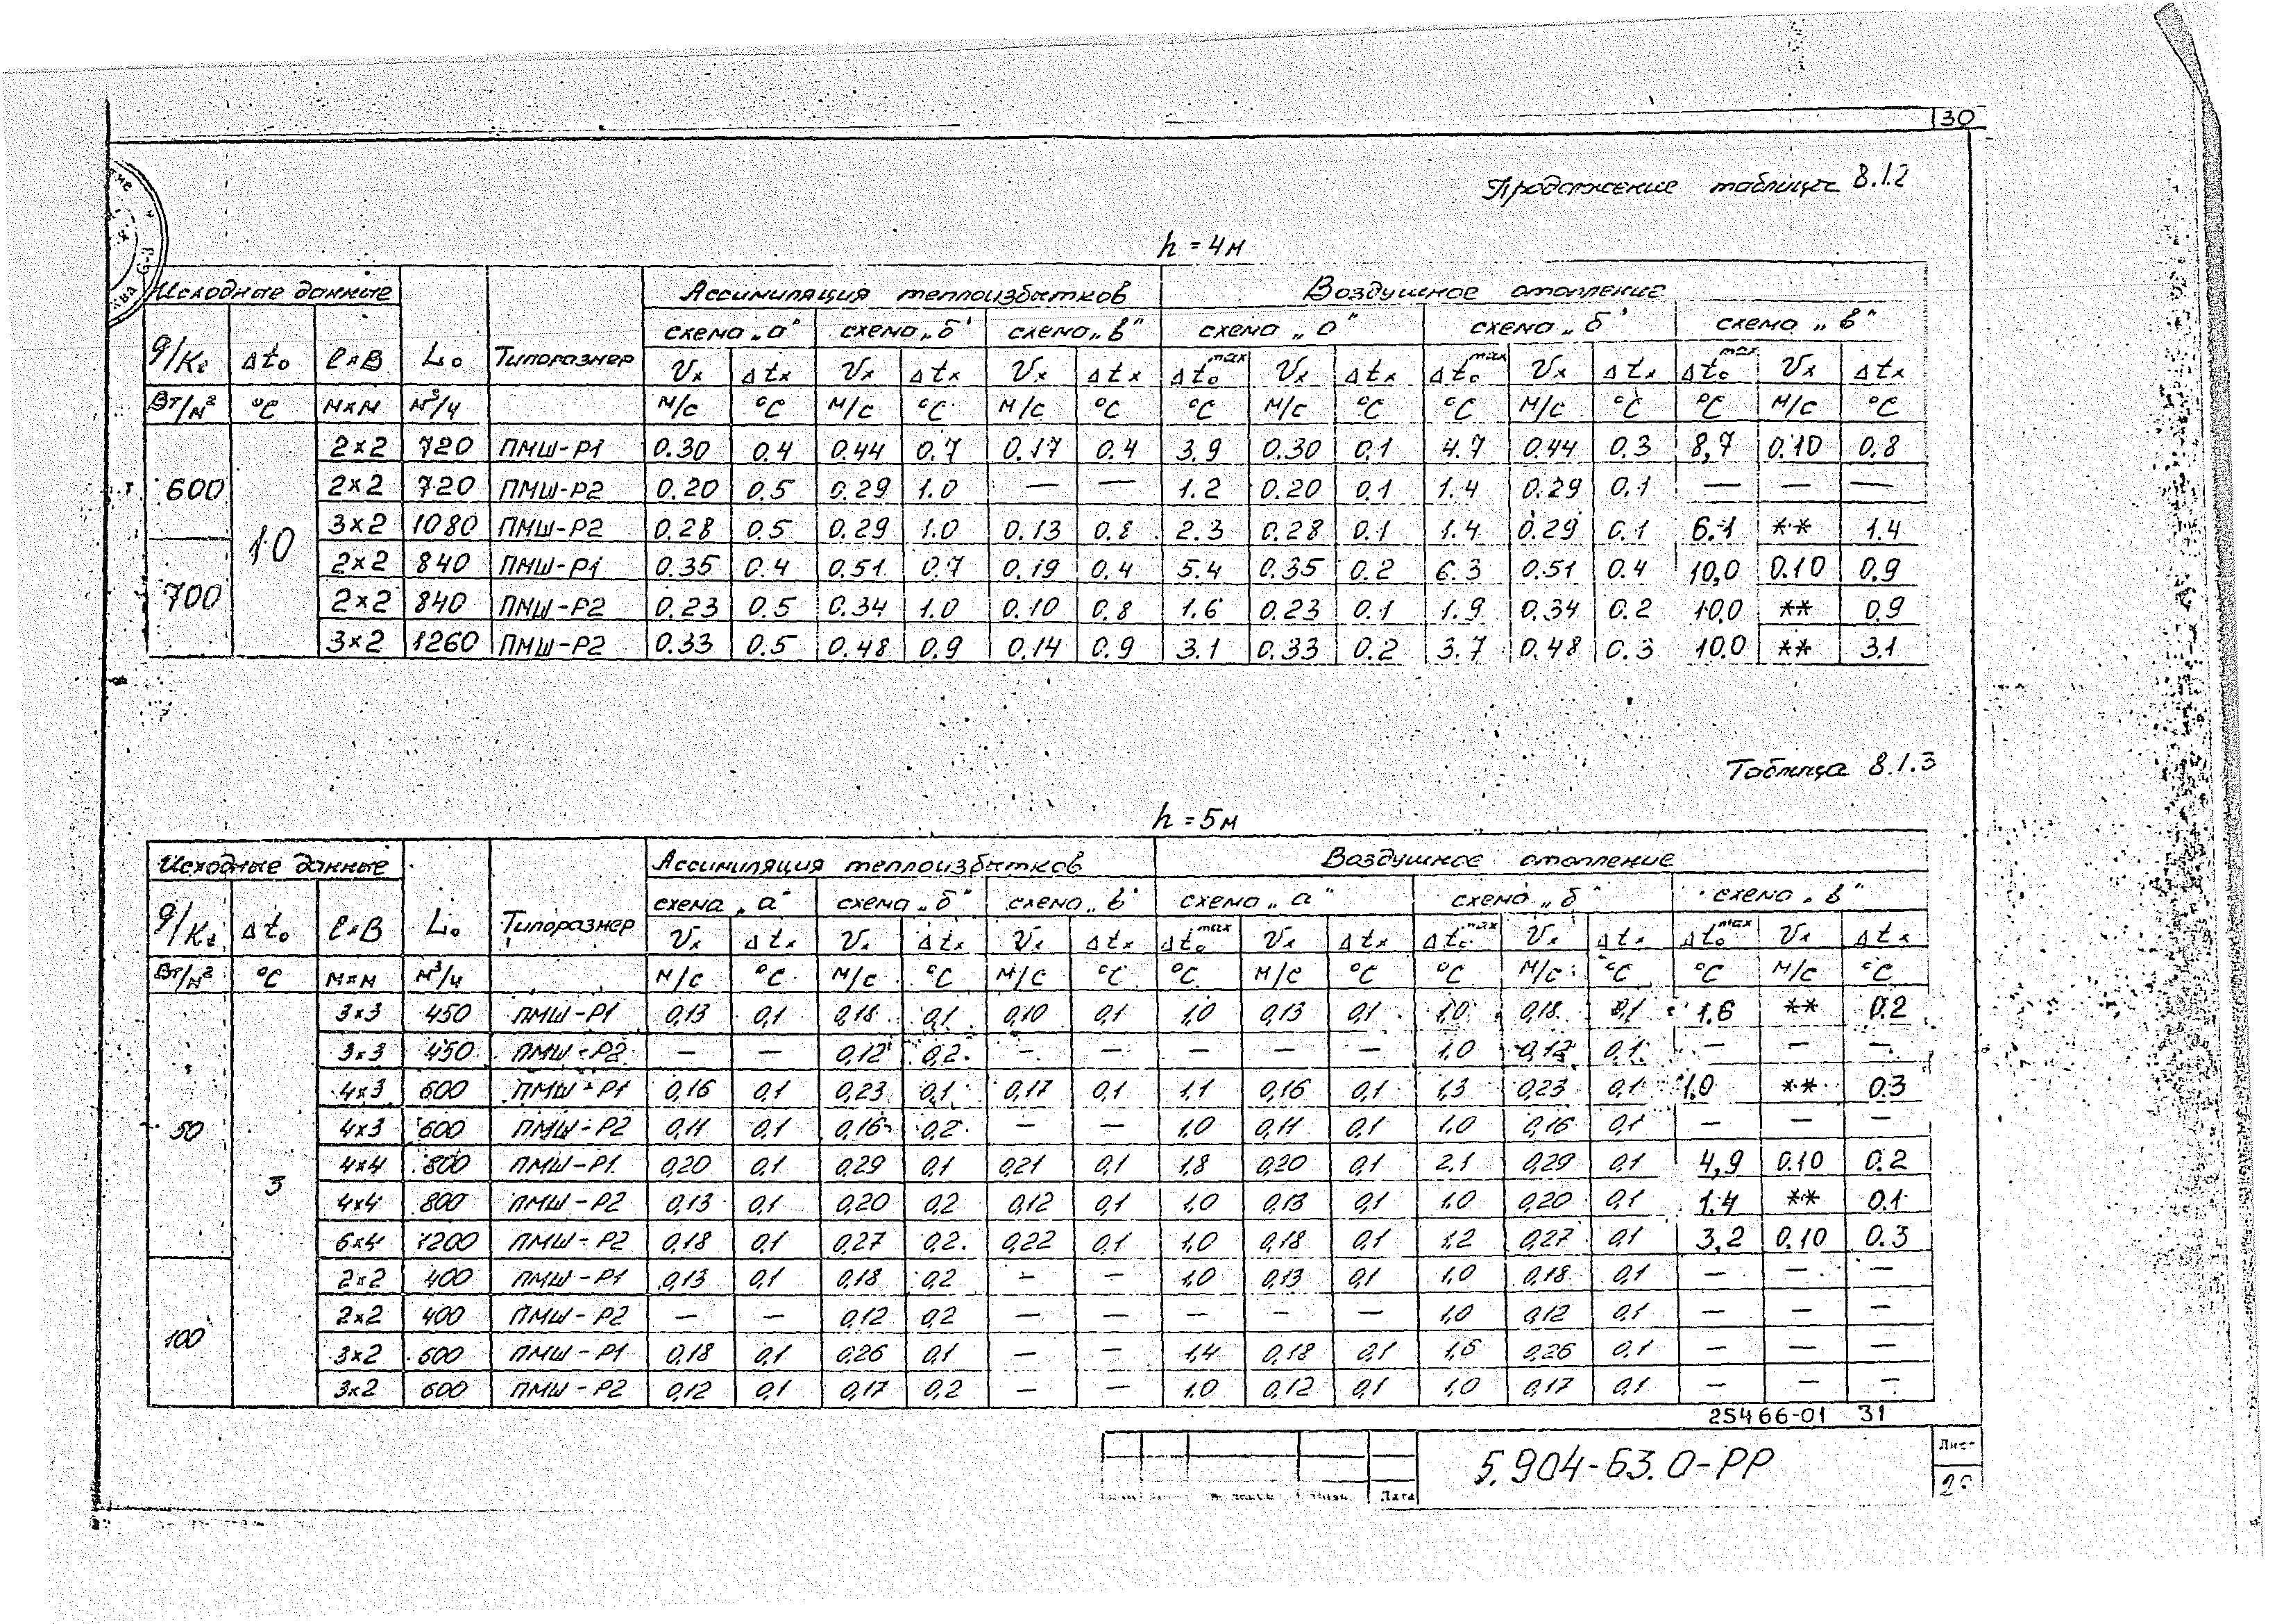 30
Продолжение таблицы 8.1.2
h = 4м
Исходные данные Ассимиляция теплоизбытков Воздушное отопление
схема „а" схема „б" схема „в" схема „а" схема „б" схема „в"
q/Kt Δto l×B Lo Типоразмер Vx Δtx Vx Δtx Vx Δtx Δto max Vx Δtx Δto max Vx Δtx Δto max Vx Δtx
Вт/м² °С м×м м³/ч м/с °С м/с °С м/с °С °С м/с °С °С м/с °С °С м/с °С
600 10 2×2 720 ПМШ-Р1 0.30 0.4 0.44 0.7 0.17 0.4 3.9 0.30 0.1 4.7 0.44 0.3 8,7 0.10 0.8
2×2 720 ПМШ-Р2 0.20 0.5 0.29 1.0 — — 1.2 0.20 0.1 1.4 0.29 0.1 — — —
3×2 1080 ПМШ-Р2 0.28 0.5 0.29 1.0 0.13 0.8 2.3 0.28 0.1 1.4 0.29 0.1 6.1 ** 1.4
700 2×2 840 ПМШ-Р1 0.35 0.4 0.51 0.7 0.19 0.4 5.4 0.35 0.2 6.3 0.51 0.4 10,0 0.10 0.9
2×2 840 ПМШ-Р2 0.23 0.5 0.34 1.0 0.10 0.8 1.6 0.23 0.1 1.9 0.34 0.2 10.0 ** 0.9
3×2 1260 ПМШ-Р2 0.33 0.5 0.48 0.9 0.14 0.9 3.1 0.33 0.2 3.7 0.48 0.3 10.0 ** 3.1
Таблица 8.1.3
h = 5м
Исходные данные Ассимиляция теплоизбытков Воздушное отопление
схема „а" схема „б" схема „в" схема „а" схема „б" схема „в"
q/Kt Δto l×B Lo Типоразмер Vx Δtx Vx Δtx Vx Δtx Δto max Vx Δtx Δto max Vx Δtx Δto max Vx Δtx
Вт/м² °С м×м м³/ч м/с °С м/с °С м/с °С °С м/с °С °С м/с °С °С м/с °С
50 3 3×3 450 ПМШ-Р1 0,13 0,1 0,18 0,1 0,10 0,1 1,0 0,13 0,1 1,0 0,18 0,1 1.6 ** 0.2
3×3 450 ПМШ-Р2 — — 0,12 0,2 — — — — — 1,0 0,12 0,1 — — —
4×3 600 ПМШ-Р1 0,16 0,1 0,23 0,1 0,17 0,1 1,1 0,16 0,1 1,3 0,23 0,1 1.0 ** 0.3
4×3 600 ПМШ-Р2 0,11 0,1 0,16 0,2 — — 1,0 0,11 0,1 1,0 0,16 0,1 — — —
4×4 800 ПМШ-Р1 0,20 0,1 0,29 0,1 0,21 0,1 1,8 0,20 0,1 2,1 0,29 0,1 4,9 0.10 0.2
4×4 800 ПМШ-Р2 0,13 0,1 0,20 0,2 0,12 0,1 1,0 0,13 0,1 1,0 0,20 0,1 1.4 ** 0.1
6×4 1200 ПМШ-Р2 0,18 0,1 0,27 0,2 0,22 0,1 1,0 0,18 0,1 1,2 0,27 0,1 3,2 0.10 0.3
100 2×2 400 ПМШ-Р1 0,13 0,1 0,18 0,2 — — 1,0 0,13 0,1 1,0 0,18 0,1 — — —
2×2 400 ПМШ-Р2 — — 0,12 0,2 — — — — — 1,0 0,12 0,1 — — —
3×2 600 ПМШ-Р1 0,18 0,1 0,26 0,1 — — 1,4 0,18 0,1 1,6 0,26 0,1 — — —
3×2 600 ПМШ-Р2 0,12 0,1 0,17 0,2 — — 1,0 0,12 0,1 1,0 0,17 0,1 — — —
25466-01 31
5.904-63.0-РР
Лист
Дата